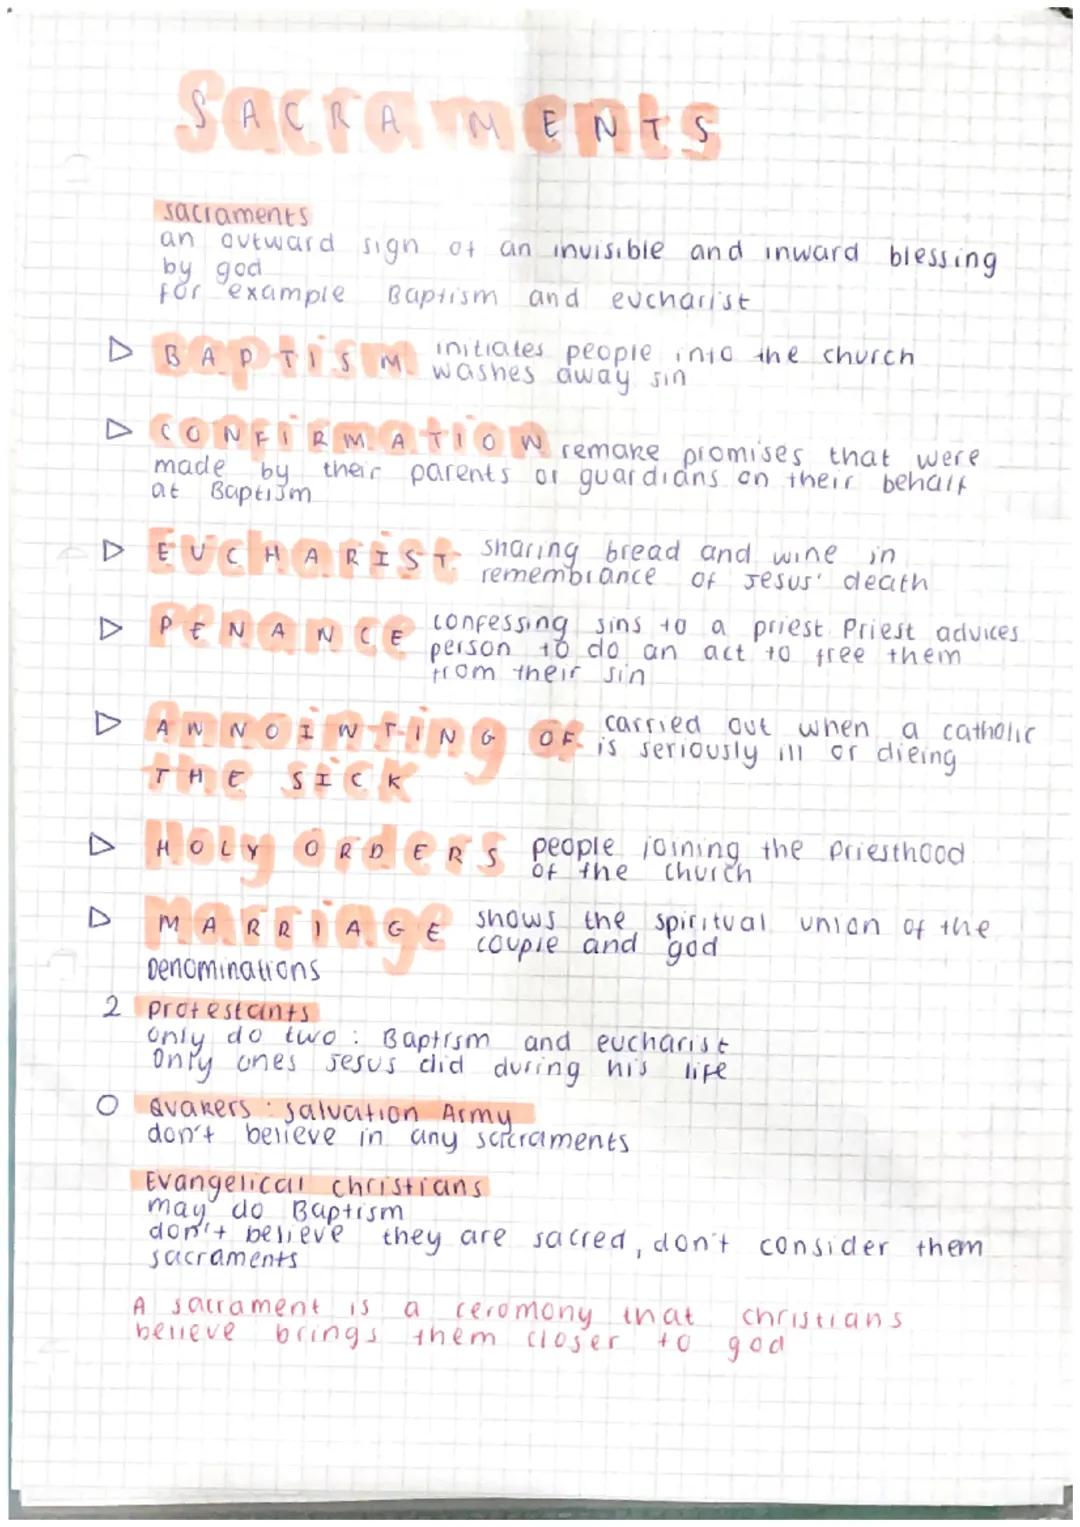 SACRAMENTS
sacraments
an outward sign of an invisible and inward blessing
by god
for example Baptism and eucharist
BAPTISM initiates people into the church
washes away sin
CONFIRMATION remake promises that were
made by their parents or guardians on their behalf
at Baptism
EUCHARIST sharing bread and wine in
remembrance of Jesus' death
PENANCE confessing sins to a priest. Priest advices
person to do an act to free them
from their sin
ANNOINTING OF carried out when a catholic
is seriously ill or dieing
THE SICK
HOLY ORDERS people joining the priesthood
of the church
MARRIAGE shows the spiritual union of the
couple and god
Denominations
2 protestants
only do two: Baptism and eucharist
Only ones Jesus did during his life
0 Quakers: salvation Army
don't believe in any sacraments
Evangelical christians
may do Baptism
don't believe they are sacred, don't consider them
sacraments
A sacrament is a ceromony that christians
believe brings them closer to god